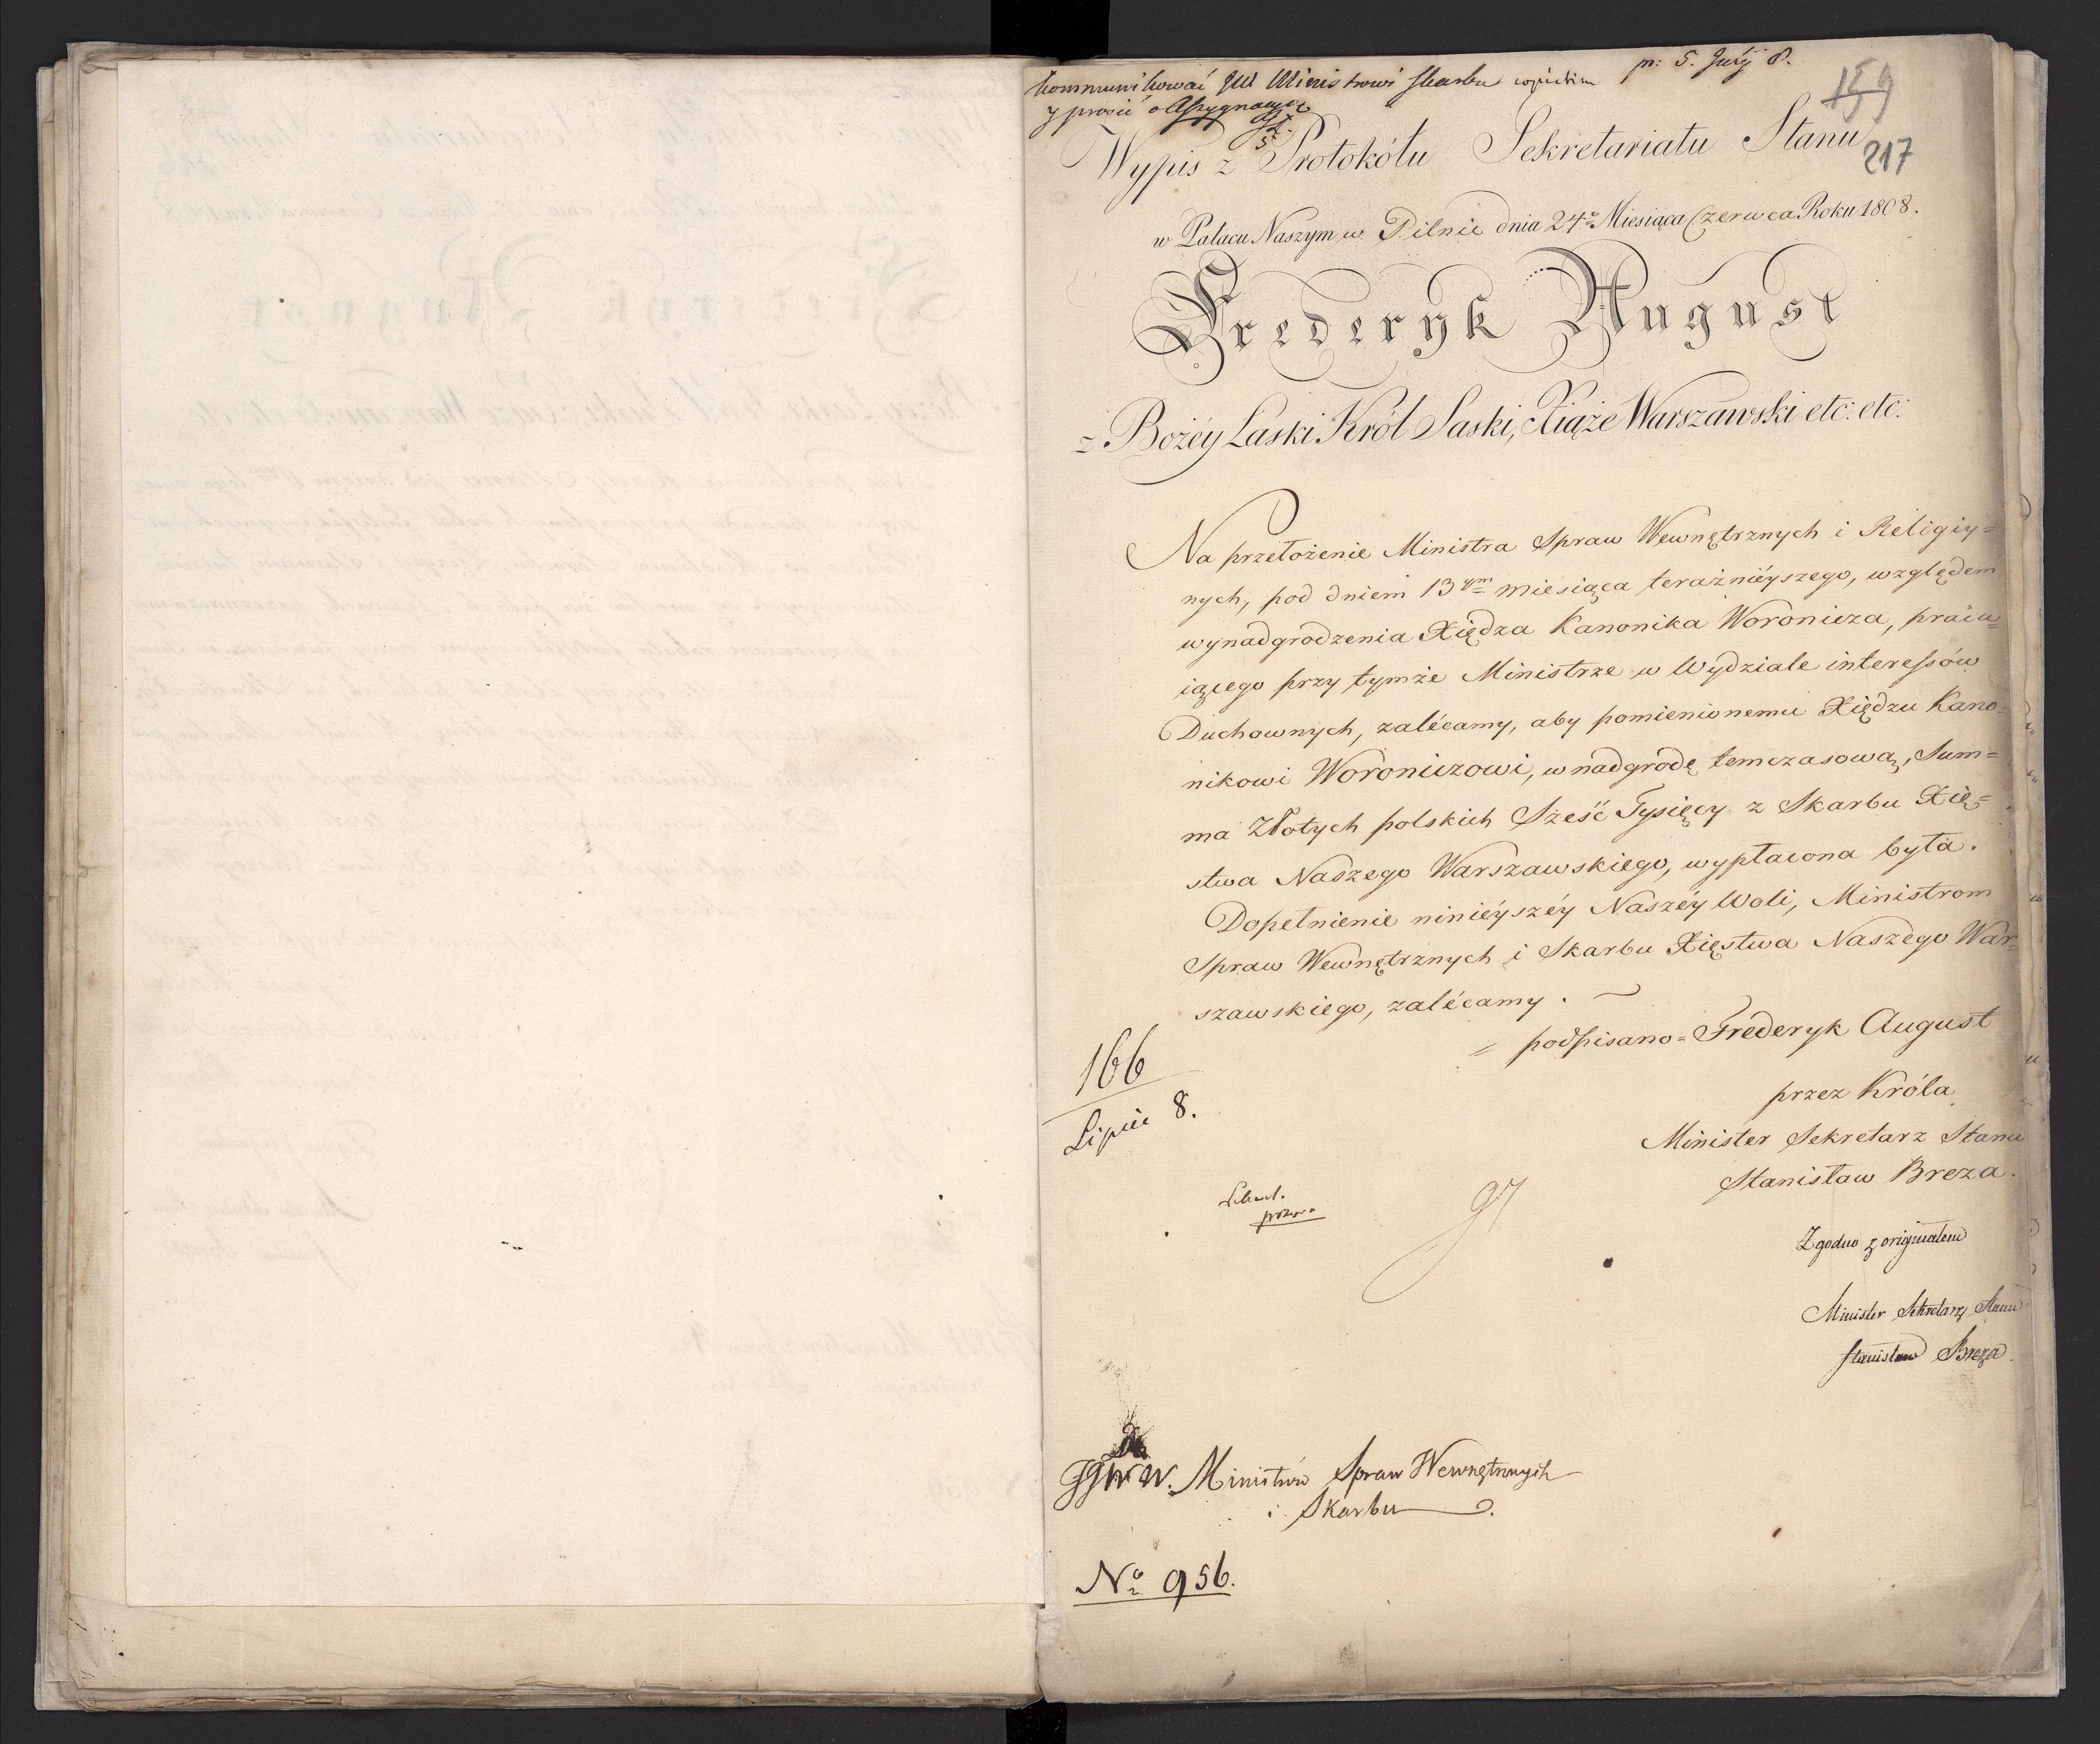 kommunikować JW Ministrowi Skarbu
p: 5. July 8.
y prosić o Assygnacyą
159
217
Wypis z Protokółu Sekretariatu Stanu
w Pałacu Naszym w Pilnie dnia 24º Miesiąca Czerwca Roku 1808.
Frederyk August
z Bożéy Łaski Król Saski, Xiąże Warszawski etc: etc:
Na przełożenie Ministra Spraw Wewnętrznych i Religiy=
nych, pod dniem 13ym miesiąca teraźniéyszego, względem
wynadgrodzenia Xiędza Kanonika Woronicza, pracu=
iącego przy tymże Ministrze w Wydziale interessów
Duchownych, zalécamy, aby pomienionemu Xiędzu Kano=
nikowi Woroniczowi, w nadgrodę temczasową, Sum=
ma Złotych polskich Sześć Tysięcy z Skarbu Xię=
stwa Naszego Warszawskiego, wypłacona była.
Dopełnienie niniéyszéy Naszéy Woli, Ministrom
Spraw Wewnętrznych i Skarbu Xięstwa Naszego War=
szawskiego, zalécamy.
= podpisano = Frederyk August
166
Lipiec 8.
przez Króla
Minister Sekretarz Stanu
Stanisław Breza.
Zgodno z originałem
Minister Sekretarz Stanu
Stanisław Breza
Do
JJWW. Ministrów Spraw Wewnętrznych
i Skarbu
No 956.